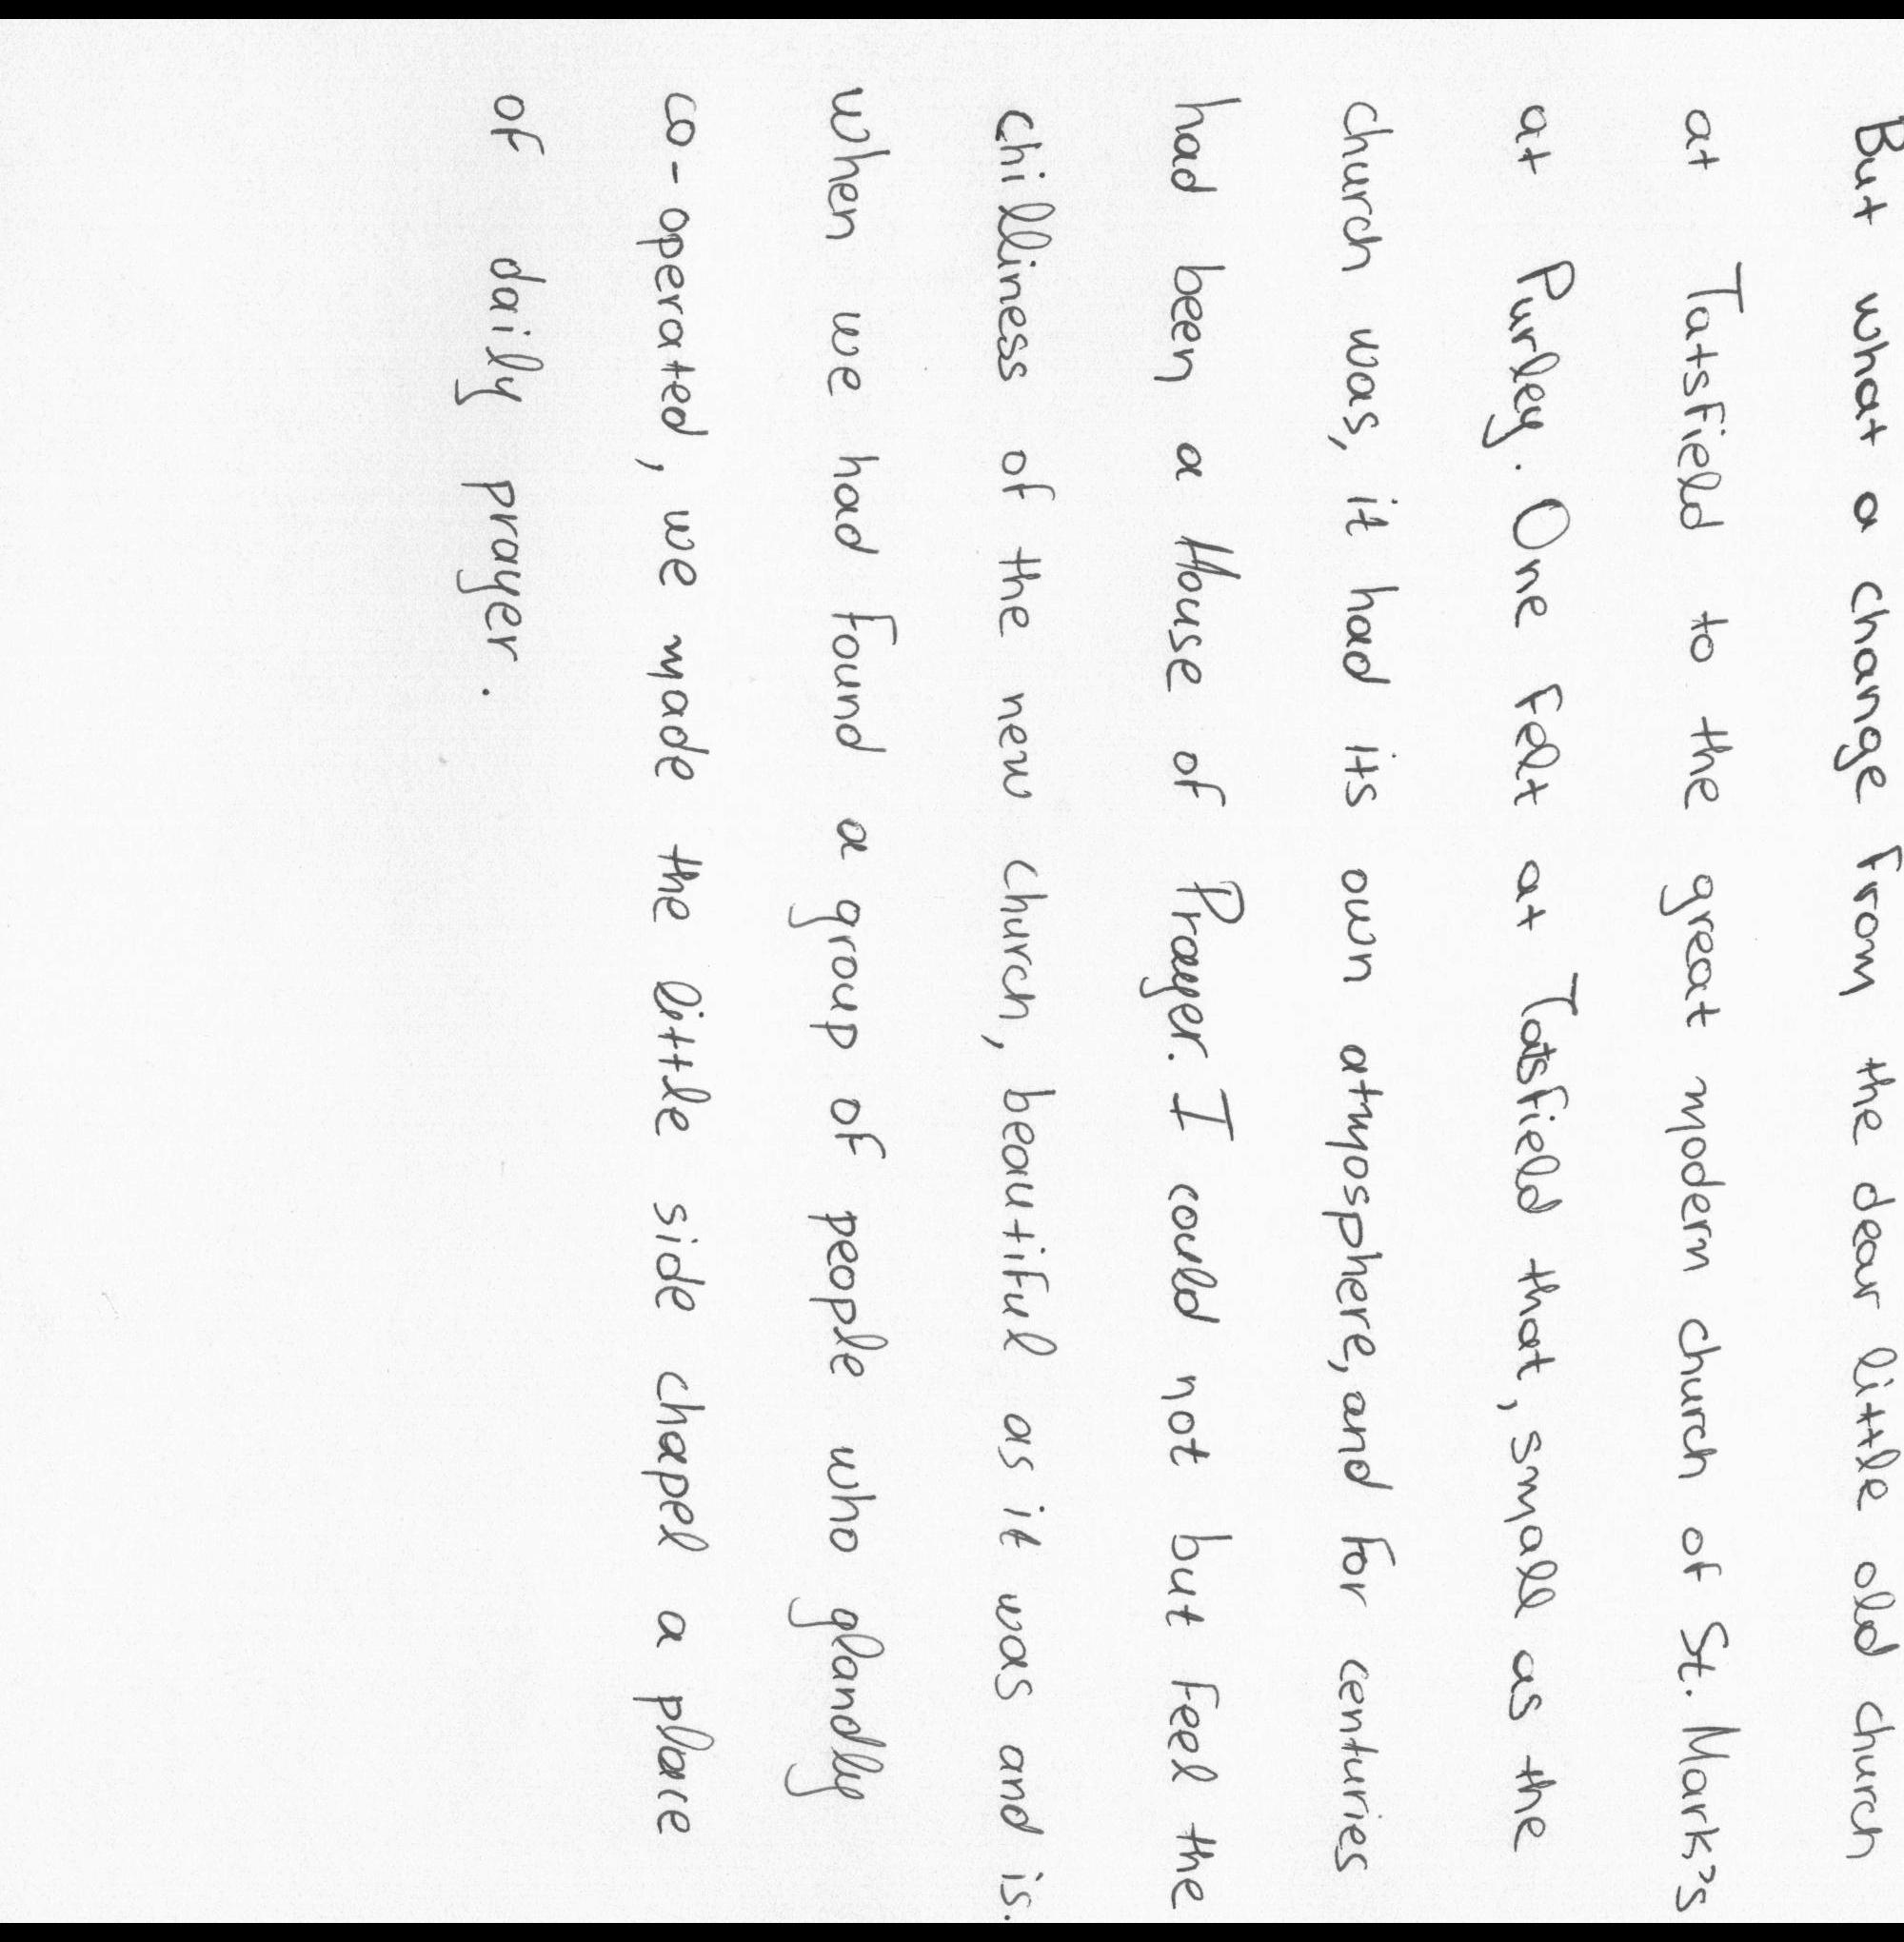 But what a change from the dear little old church
at Tatsfield to the great modern church of St. Mark's
at Purley. One felt at Tatsfield that, small as the
church was, it had its own atmosphere, and for centuries
had been a House of Prayer. I could not but feel the
chilliness of the new church, beautiful as it was and is.
When we had found a group of people who glandly
co-operated, we made the little side chapel a place
of daily prayer.